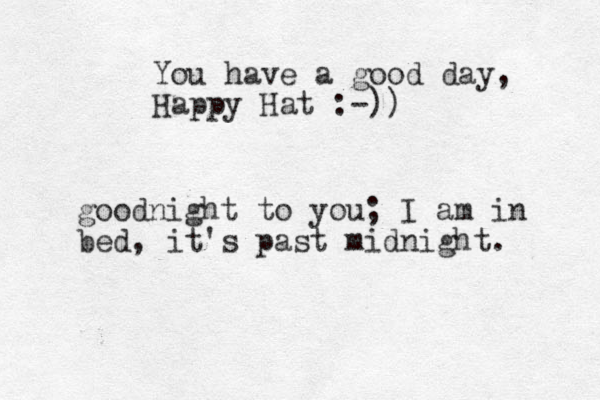 You have a good day,
Happy Hat :-))
goodnight to you; I am in
bed, it's past midnight.